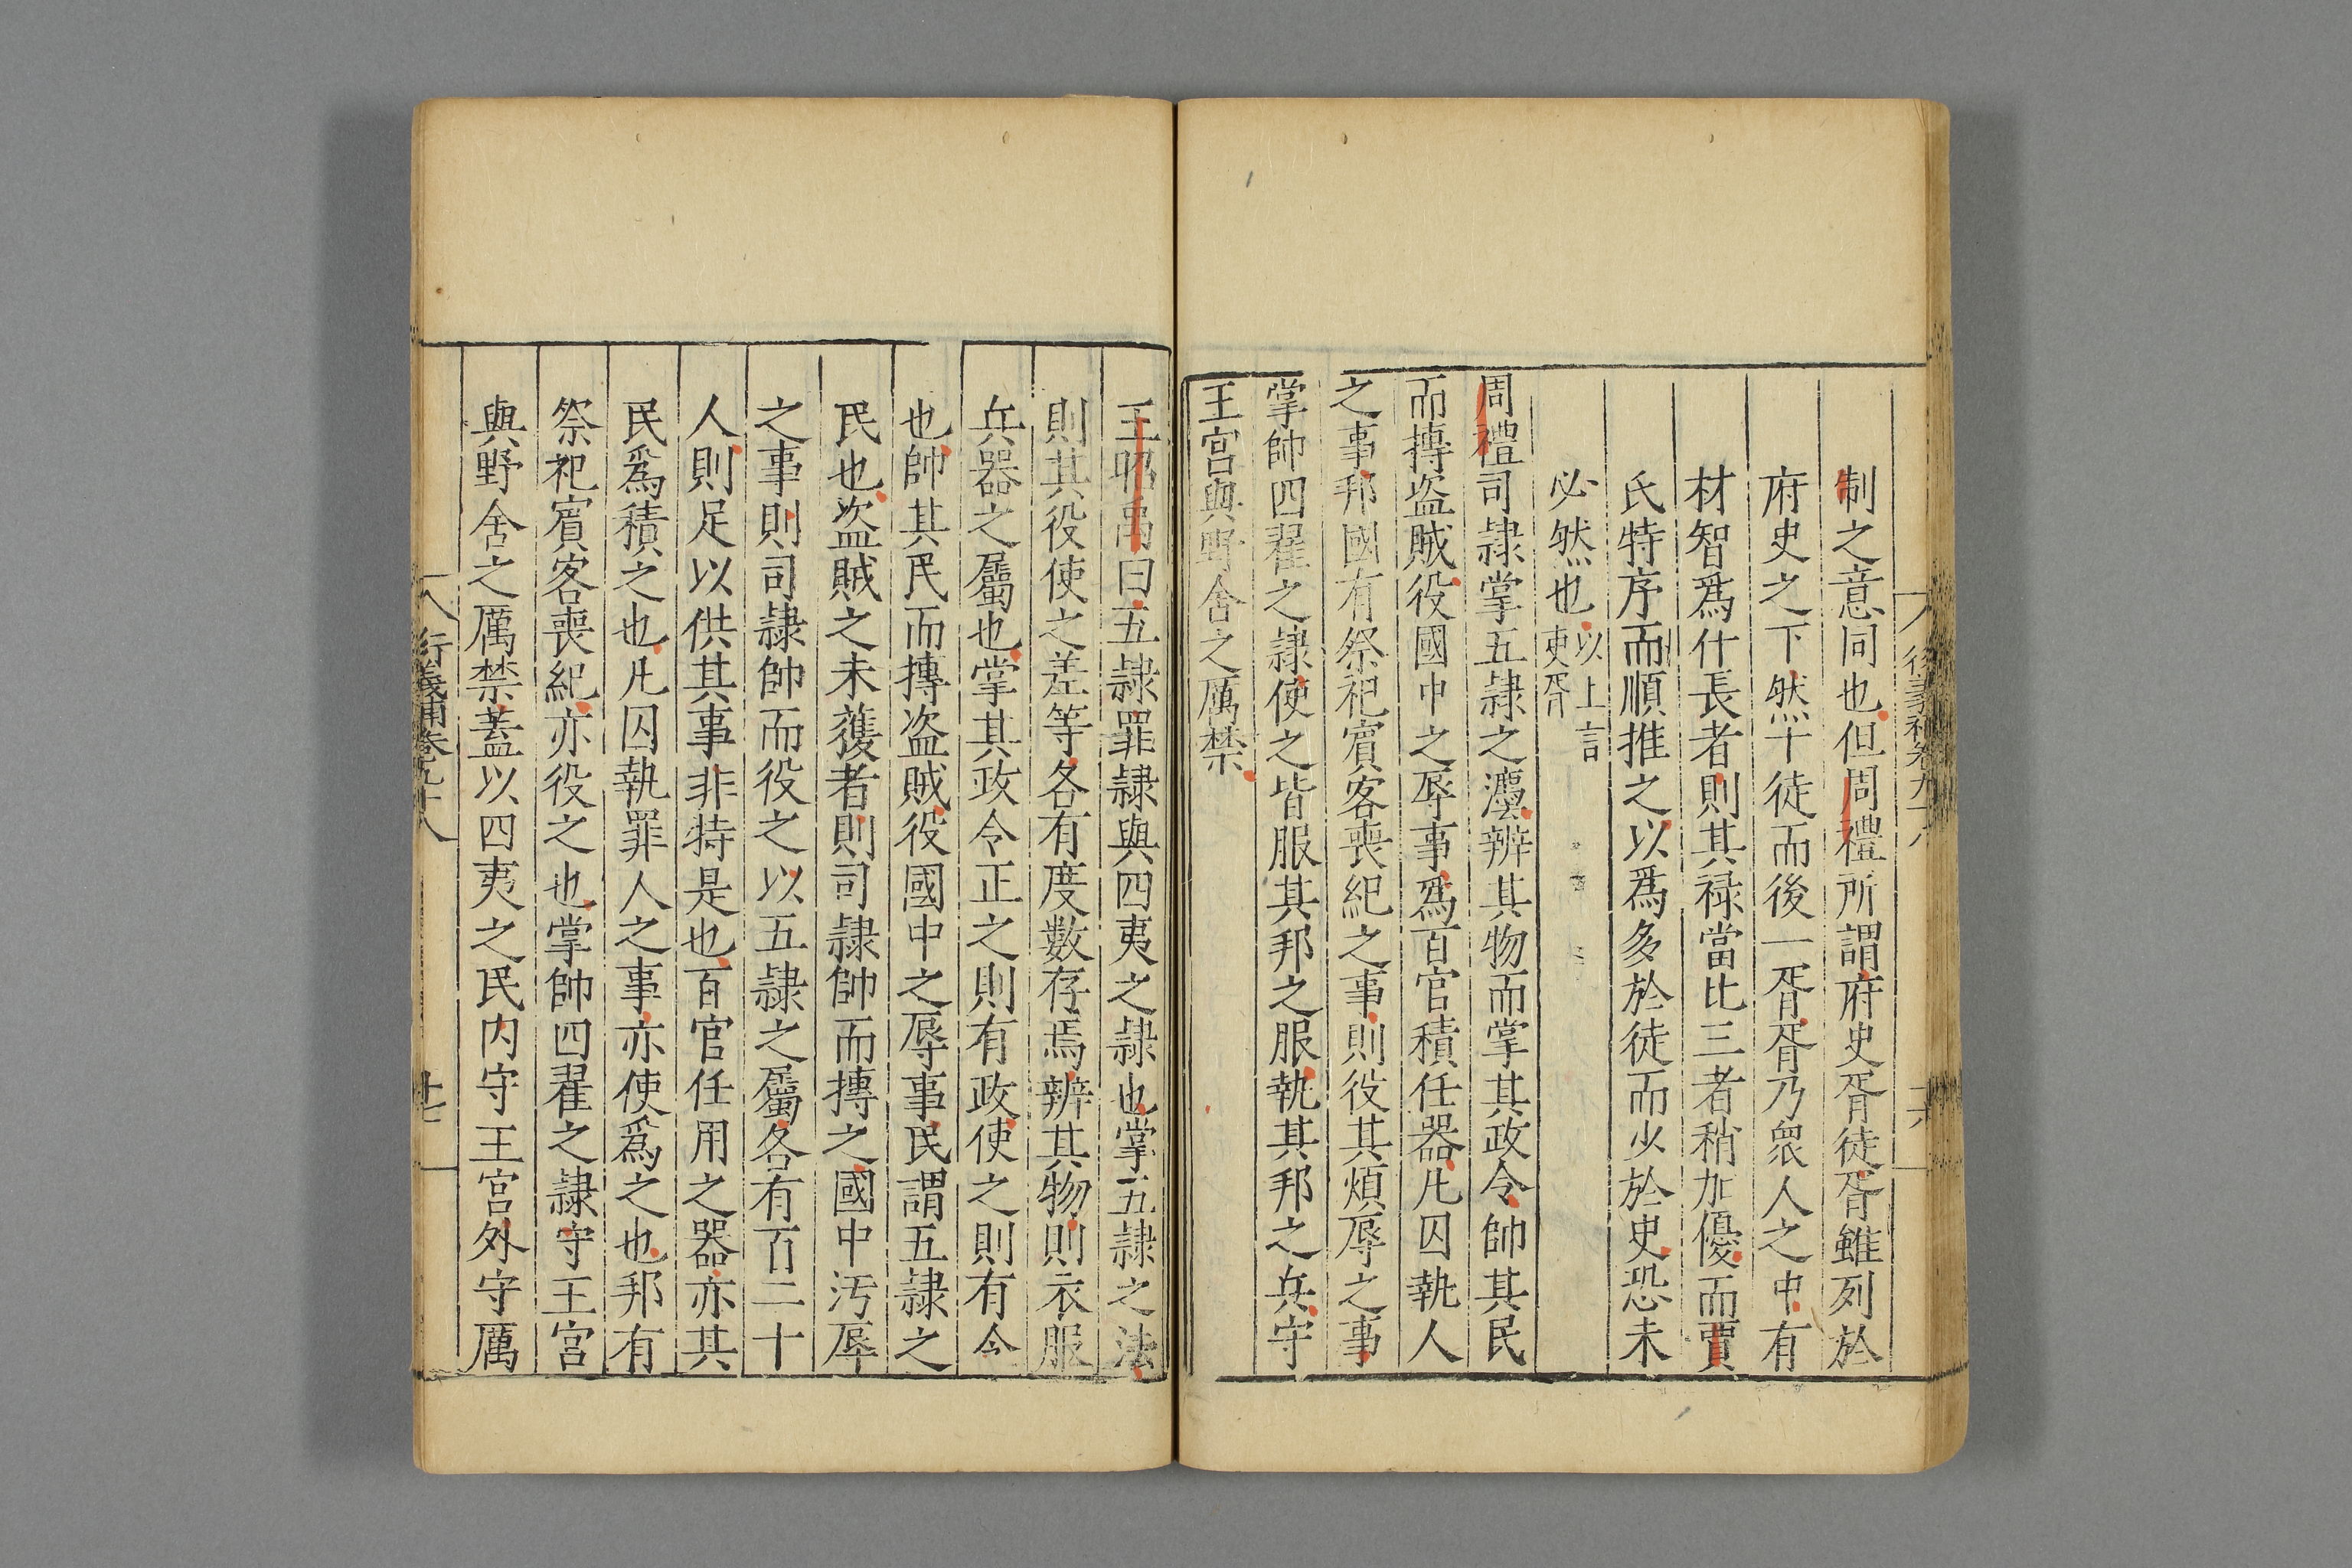 制之意同也但周禮所謂府史胥徒胥雖列於
府史之下然十徒而後一胥胥乃衆人之中有
材智爲什長者則其祿當比三者稍加優而賈
氏特序而順推之以爲多於徒而少於史恐未
必然也以上言吏胥
周禮司隷掌五隷之灋辨其物而掌其政令帥其民
而摶盗賊役國中之辱事爲百官積任器凡囚執人
之事邦國有祭祀賔客喪紀之事則役其煩辱之事
掌帥四翟之隷使之皆服其邦之服執其邦之兵守
王宮與野舍之厲禁
王昭禹曰五隷罪隷與四夷之隷也掌五隷之法
則其役使之差等各有度數存焉辨其物則衣服
兵器之屬也掌其政令正之則有政使之則有令
也帥其民而摶盗賊役國中之辱事民謂五隷之
民也盗賊之未獲者則司隷帥而摶之國中汚辱
之事則司隷帥而役之以五隷之屬各有百二十
人則足以供其事非特是也百官任用之器亦其
民爲積之也凡囚執罪人之事亦使爲之也邦有
祭祀賔客喪紀亦役之也掌帥四翟之隷守王宮
與野舍之厲禁蓋以四夷之民内守王宮外守厲
衍義補卷九十八